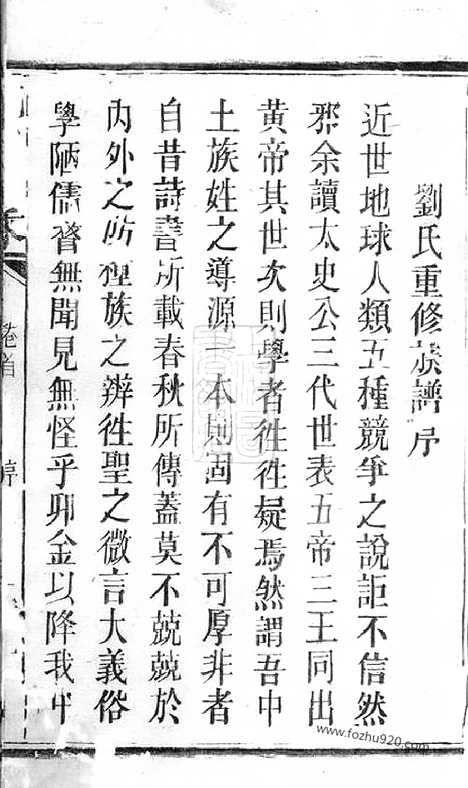 劉氏重修族譜序
近世地球人類五種競爭之說詎不信然
邪余讀太史公三代世表五帝三王同出
黄帝其世次則學者徃徃疑焉然謂吾中
土族姓之導源 本則固有不可厚非者
自昔詩書所載春秋所傳蓋莫不兢兢於
內外之所 種族之辨徃聖之微言大義俗
學陋儒瞀無聞見無怪乎卯金以降我中
氏
卷首
序
www.fozhu920.com